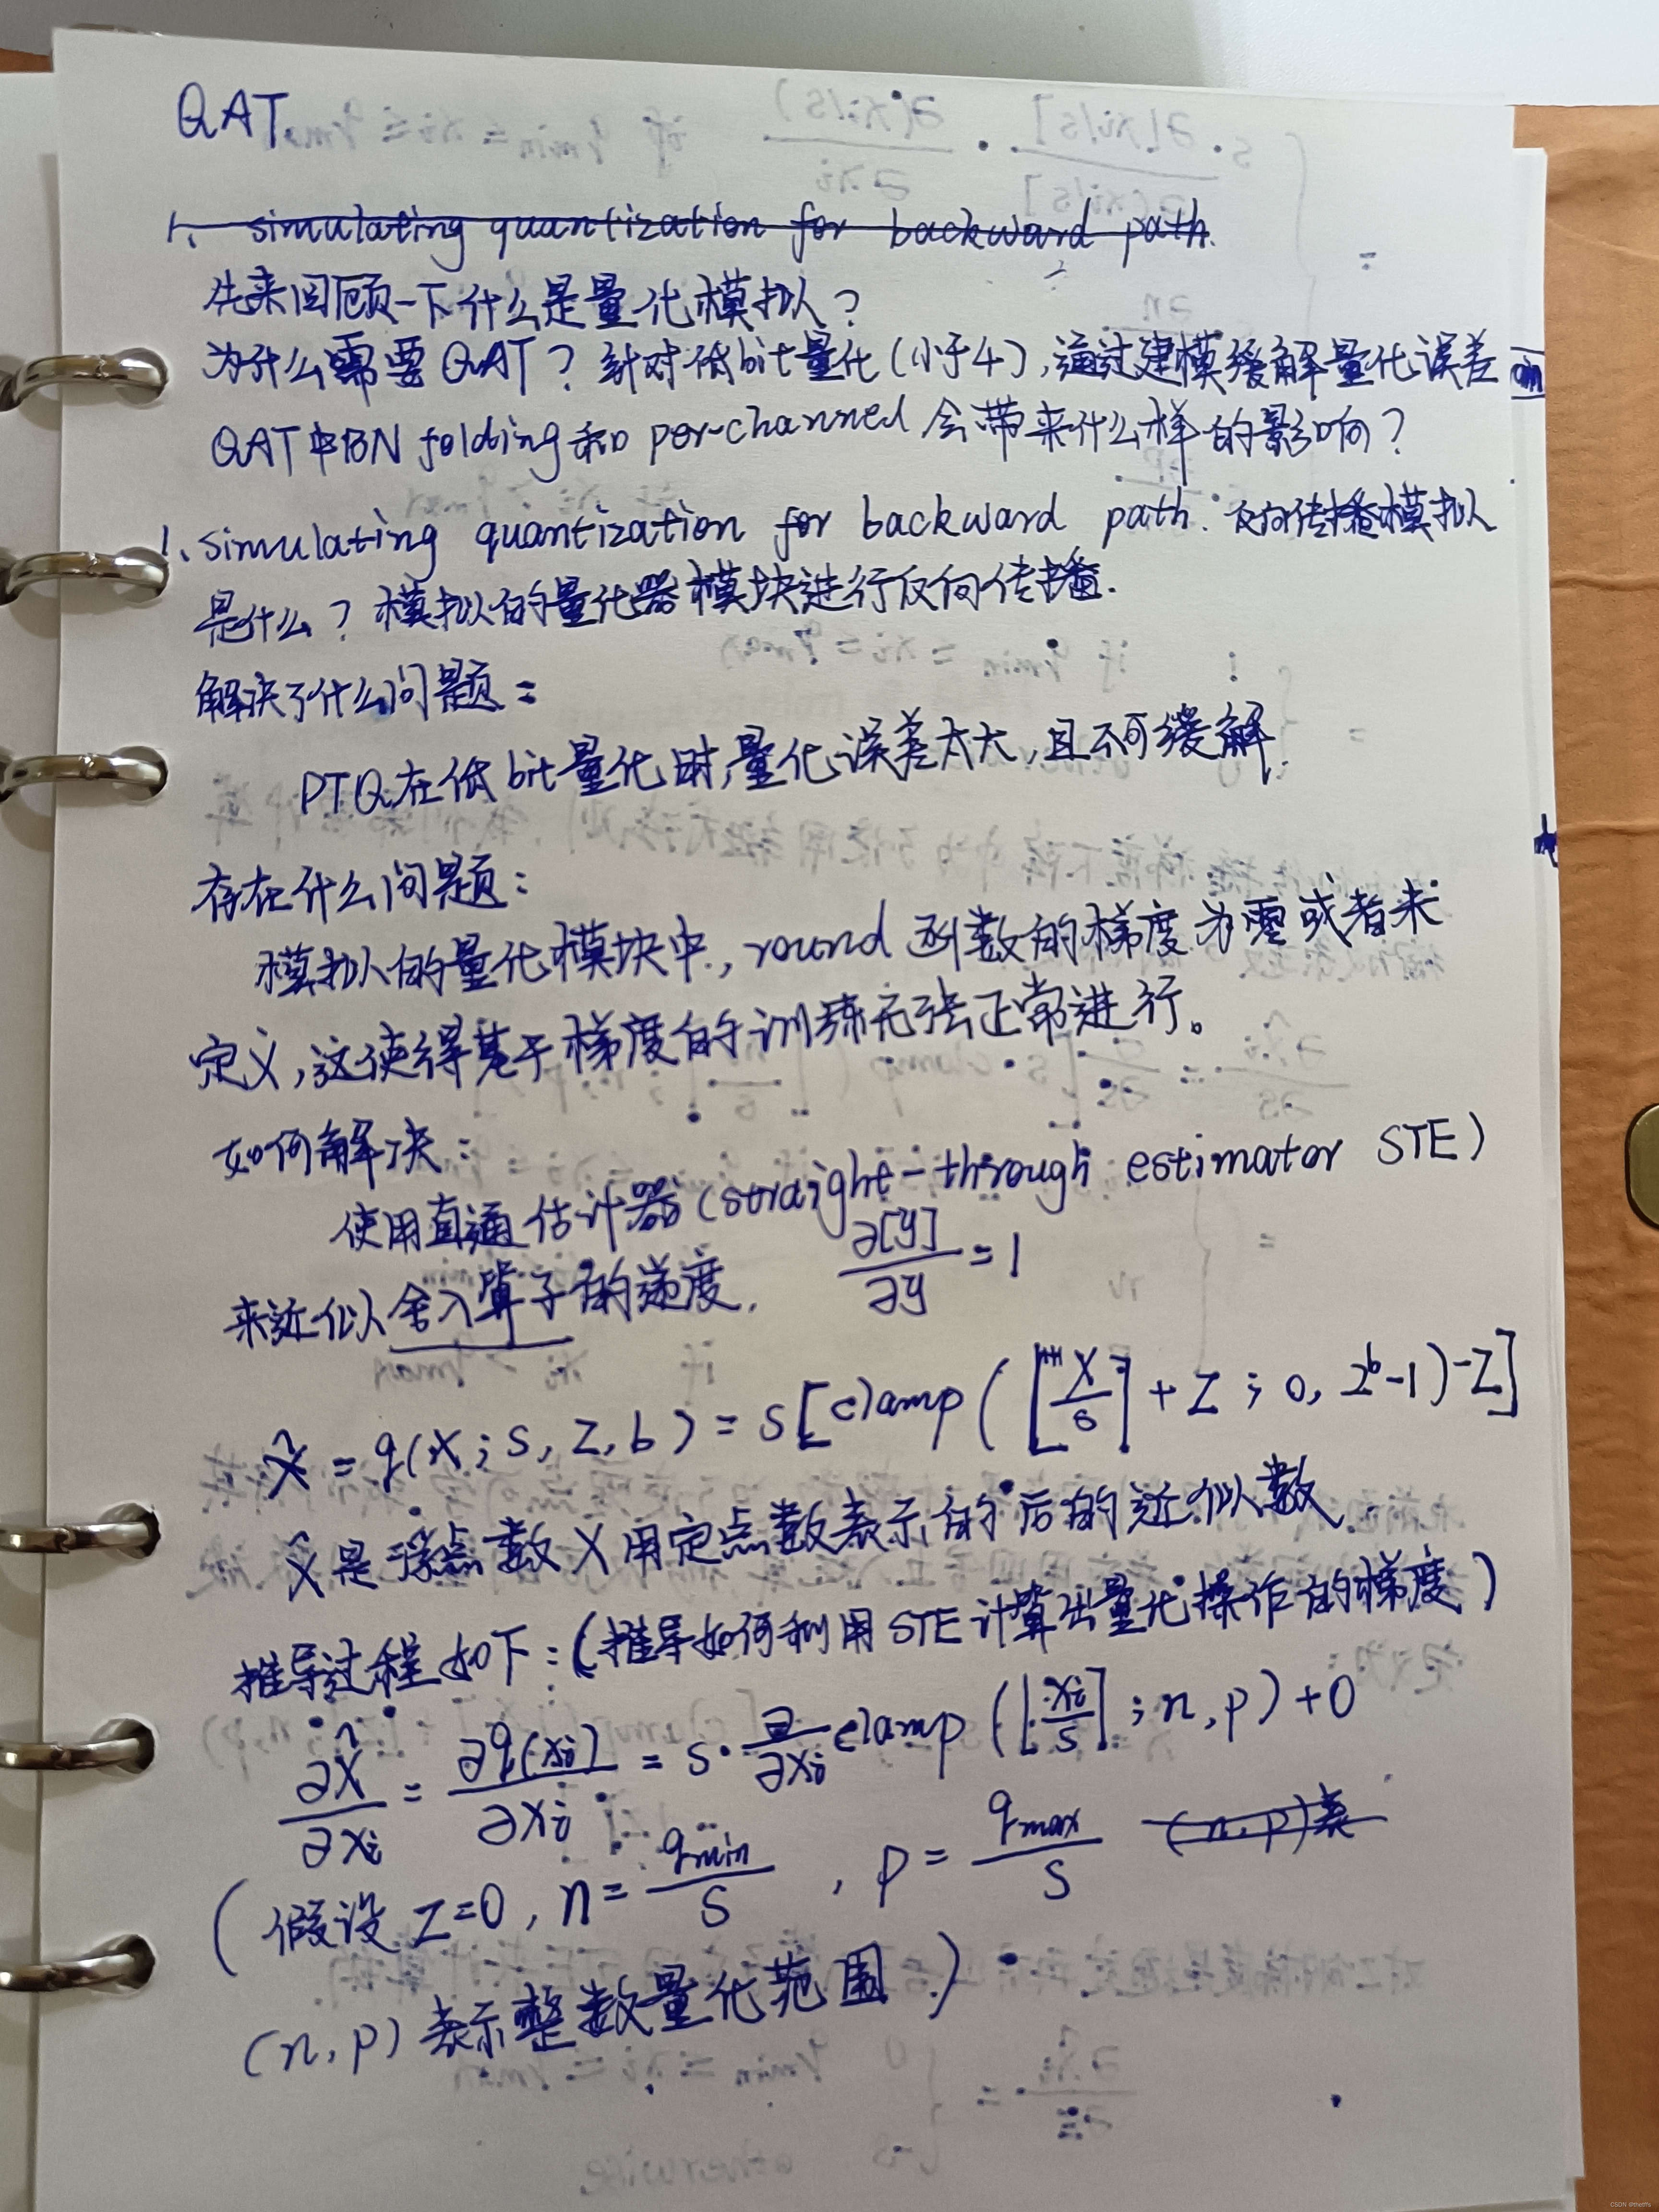 QAT
1. simulating quantization for backward path.
先来回顾一下什么是量化模拟？
为什么需要QAT？针对低bit量化(小于4),通过建模缓解量化误差
QAT中BN folding和per-channel会带来什么样的影响？
1、simulating quantization for backward path. 反向传播模拟
是什么？模拟的量化器模块进行反向传播.
解决了什么问题：
PTQ在低bit量化时,量化误差太大,且不可缓解.
存在什么问题：
模拟的量化模块中,round函数的梯度为零或者未
定义,这使得基于梯度的训练无法正常进行。
如何解决：
使用直通估计器(straight-through estimator STE)
来近似舍入算子的递度. ∂[y]/∂y = 1
x̂ = q(x; s, z, b) = s[clamp([x/s] + z; 0, 2^b-1)-z]
x̂是浮点数x用定点数表示的后的近似数.
推导过程如下：(推导如何利用STE计算出量化操作的梯度)
∂x̂/∂xi = ∂q(xi)/∂xi = s·∂/∂xi clamp([xi/s]; n, p)+0
(假设z=0, n=qmin/s, p=qmax/s (n,p)表
(n,p)表示整数量化范围.)
CSDN @thetffs